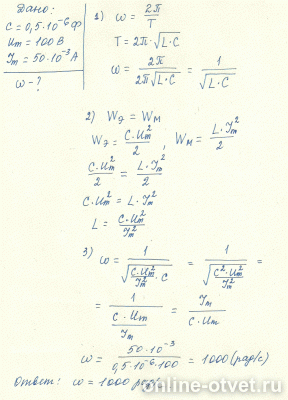 Дано:
C = 0,5·10⁻⁶ Ф
Uₘ = 100 В
Iₘ = 50·10⁻³ А
ω - ?
1) ω = 2π/T
T = 2π·√(L·C)
ω = 2π/(2π√(L·C)) = 1/√(L·C)
2) Wэ = Wм
Wэ = C·Uₘ²/2, Wм = L·Iₘ²/2
C·Uₘ²/2 = L·Iₘ²/2
C·Uₘ² = L·Iₘ²
L = C·Uₘ²/Iₘ²
3) ω = 1/√(C·Uₘ²/Iₘ² · C) = 1/√(C²·Uₘ²/Iₘ²) =
= 1/(C·Uₘ/Iₘ) = Iₘ/(C·Uₘ)
ω = 50·10⁻³/(0,5·10⁻⁶·100) = 1000 (рад/с)
Ответ: ω = 1000 рад/с
online-otvet.ru